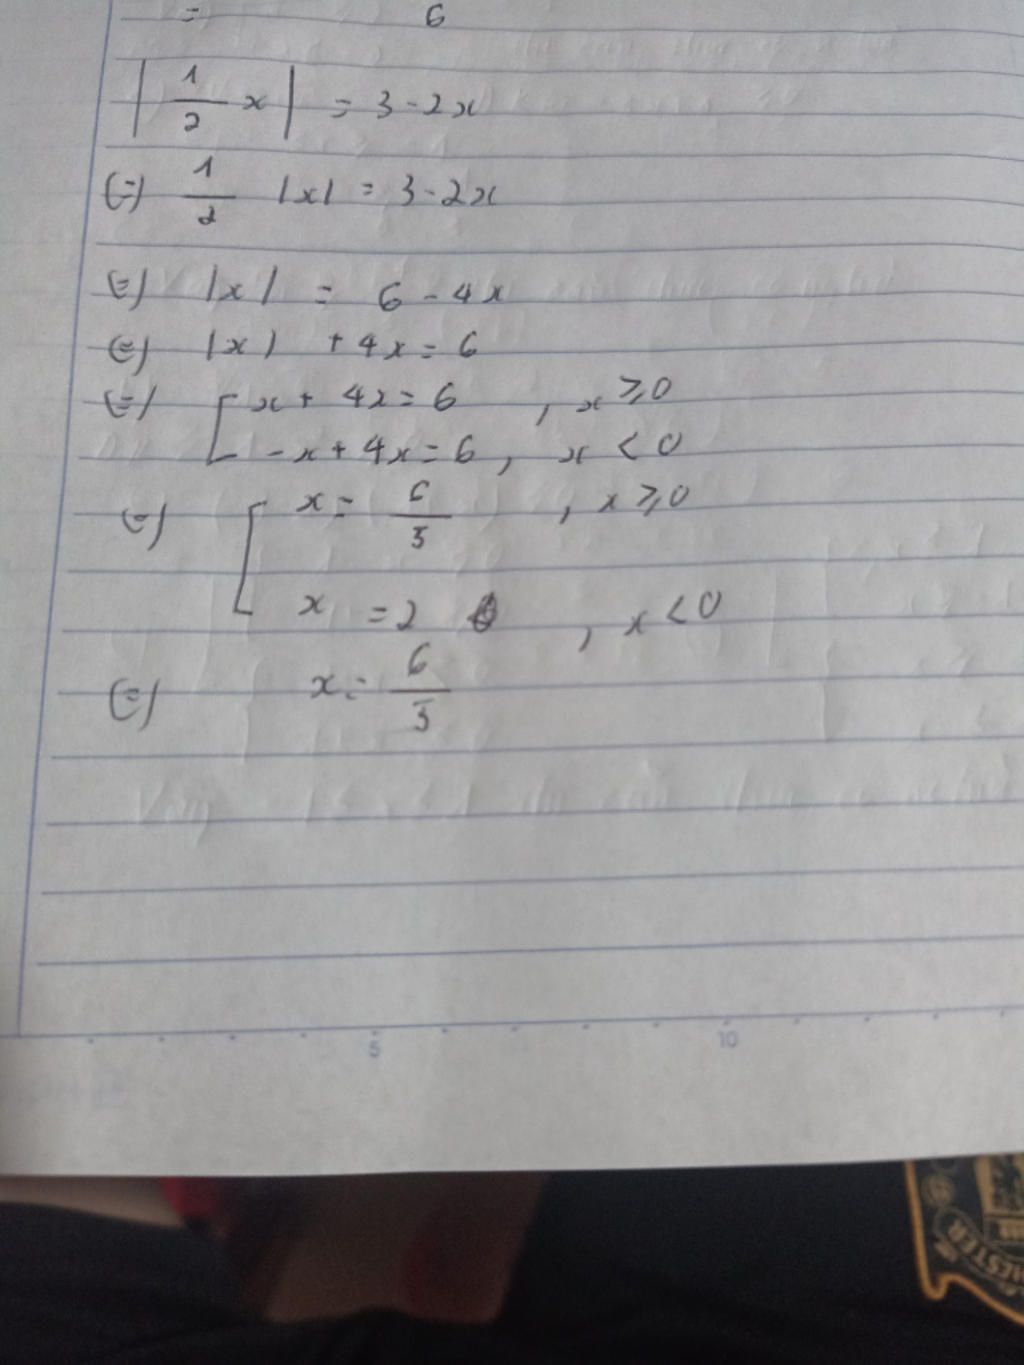 = 6
| 1/2 x | = 3 - 2x
(=) 1/2 |x| = 3 - 2x
(=) |x| = 6 - 4x
(=) |x| + 4x = 6
(=) [ x + 4x = 6 , x ⩾ 0
- x + 4x = 6 , x < 0
(=) [ x = 6/5 , x ⩾ 0
x = 2 , x < 0
(=) x = 6/5
5 10